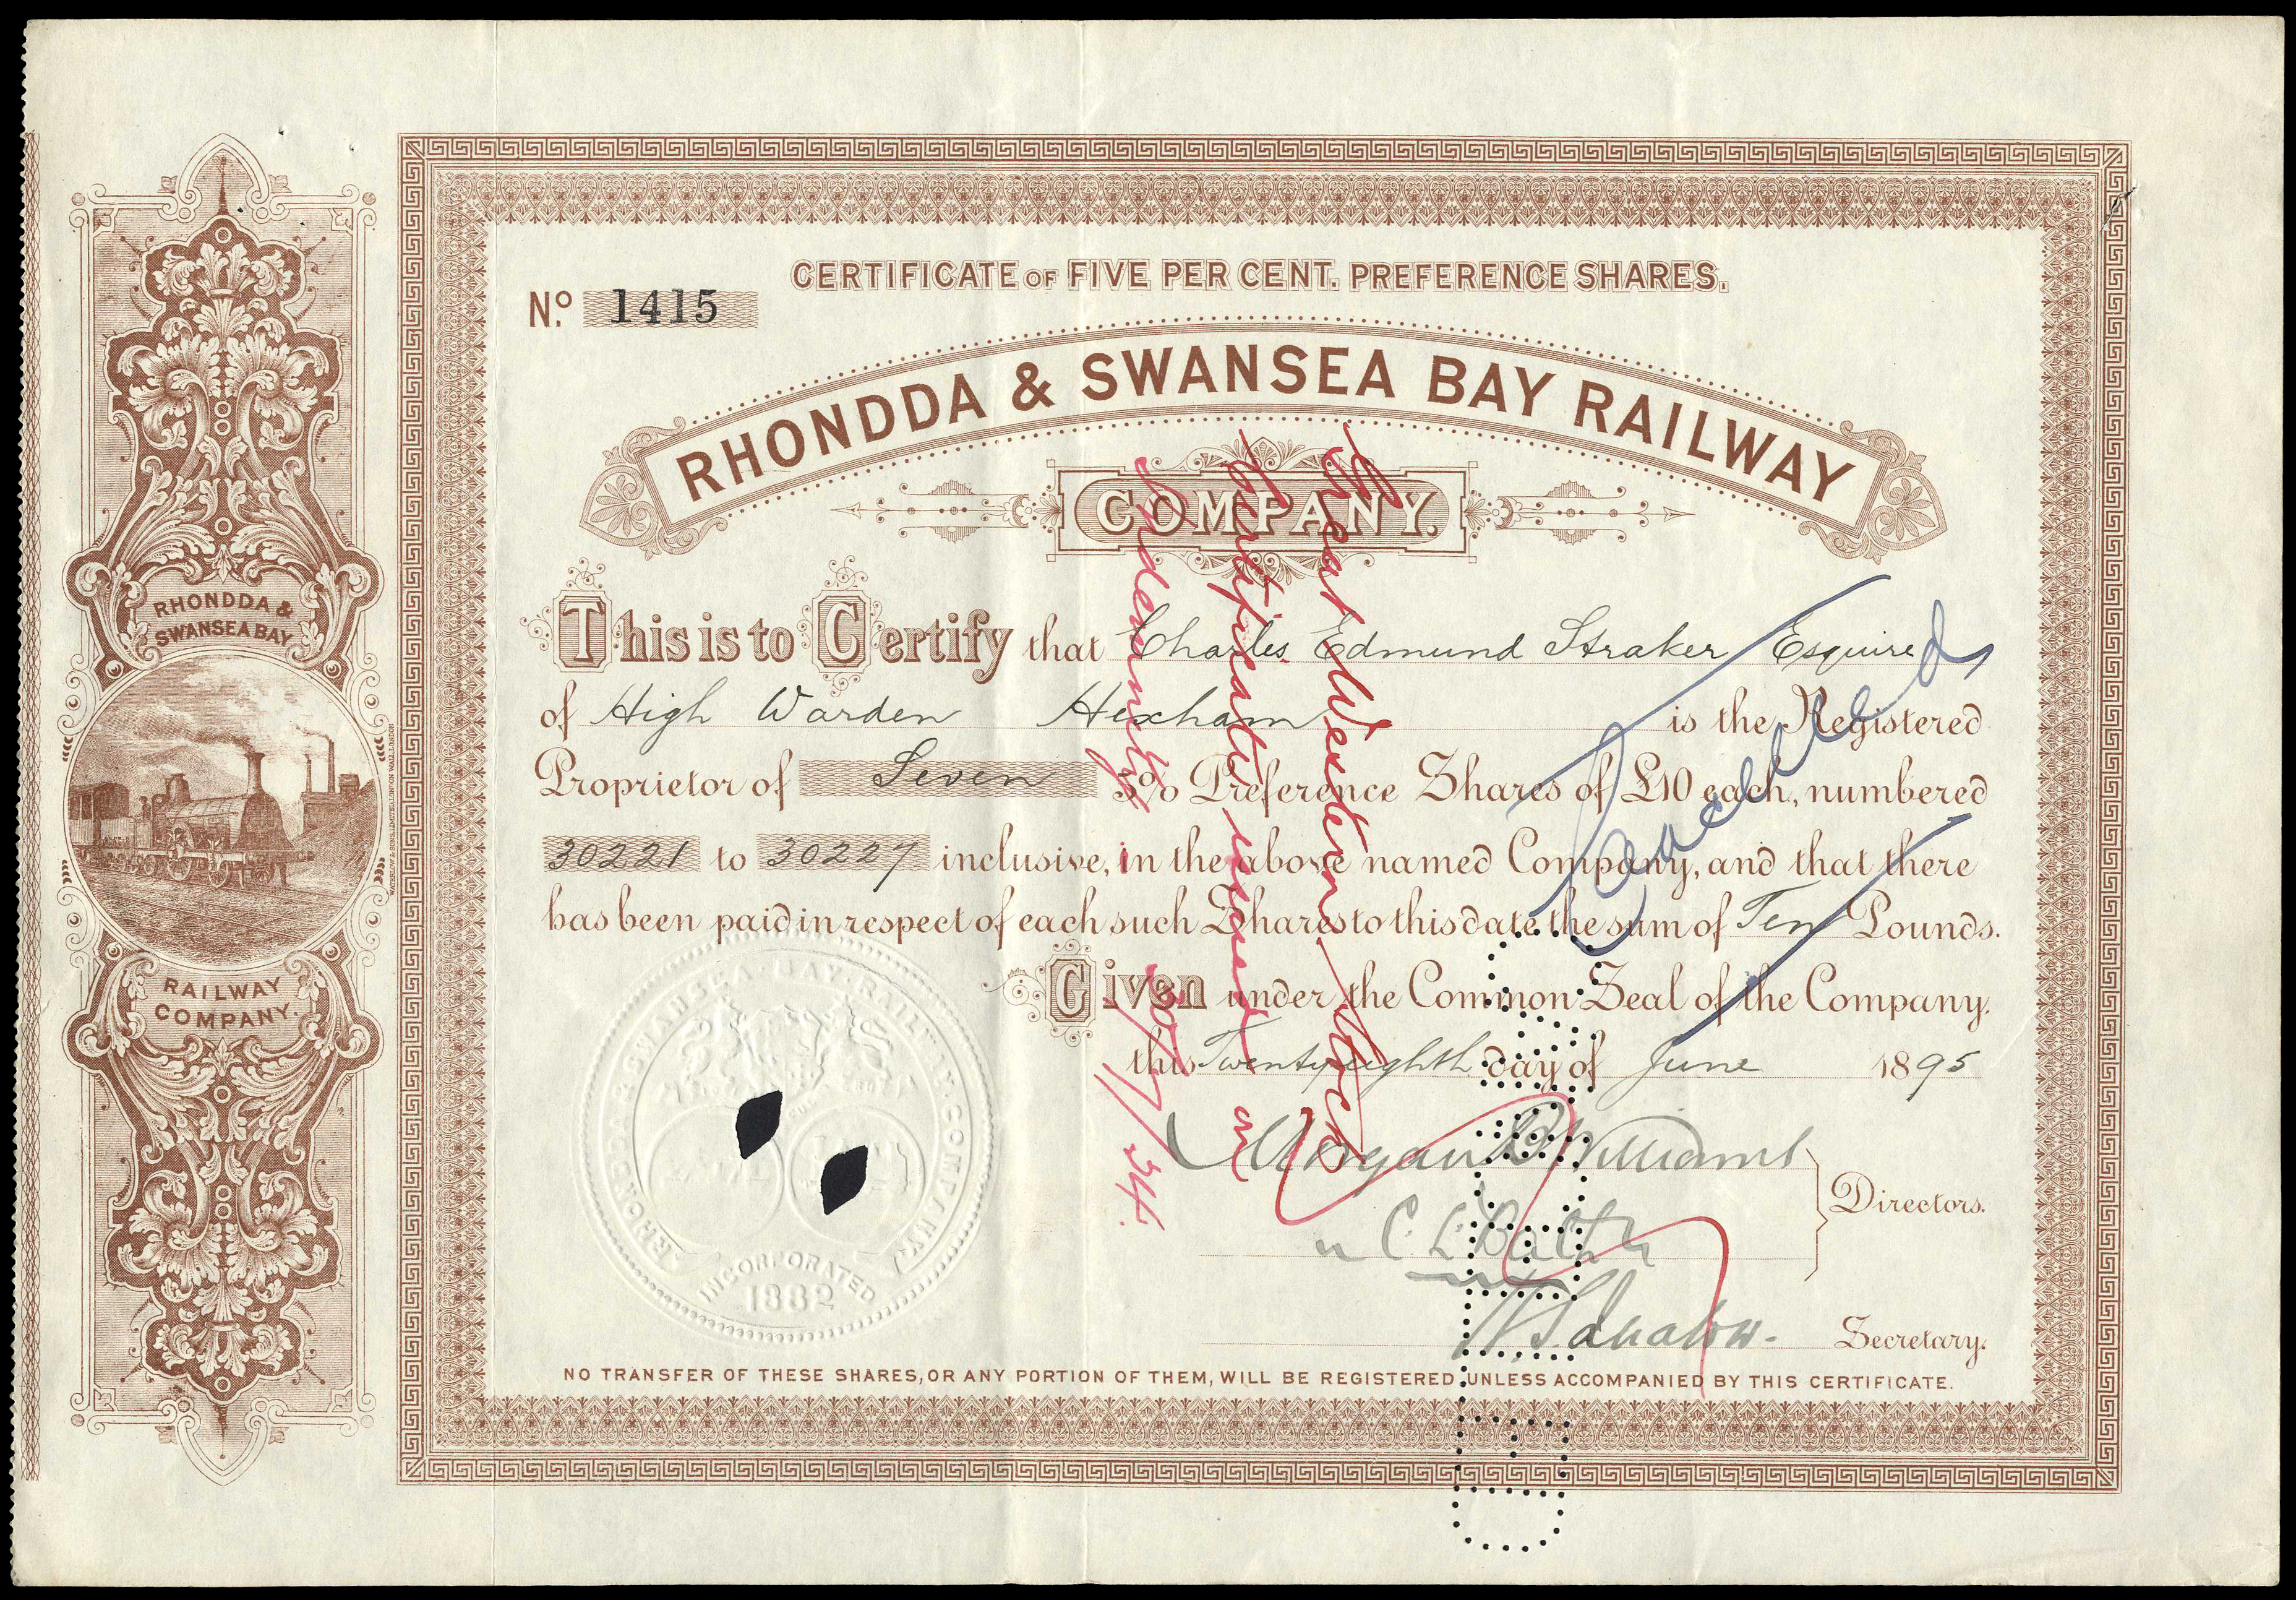 CERTIFICATE OF FIVE PER CENT. PREFERENCE SHARES.
No. 1415
RHONDDA & SWANSEA BAY RAILWAY
COMPANY.
This is to Certify that Charles Edmund Straker Esquire
of High Warden Hexham is the Registered
Proprietor of Seven 5% Preference Shares of £10 each, numbered
30221 to 30227 inclusive, in the above named Company, and that there
has been paid in respect of each such Share to this date the sum of Ten Pounds.
Given under the Common Seal of the Company.
this Twenty eighth day of June 1895
Morgan B Williams
Directors.
C L Bath
Secretary.
NO TRANSFER OF THESE SHARES, OR ANY PORTION OF THEM, WILL BE REGISTERED UNLESS ACCOMPANIED BY THIS CERTIFICATE.
RHONDDA &
SWANSEA BAY
RAILWAY
COMPANY.
WATERLOW & SONS LIMITED, LONDON WALL, LONDON
RHONDDA AND SWANSEA BAY RAILWAY COMPANY
INCORPORATED
1882
Cancelled
Great Western Stock
Certificate issued on
Indemnity
7/24.
CANCELLED